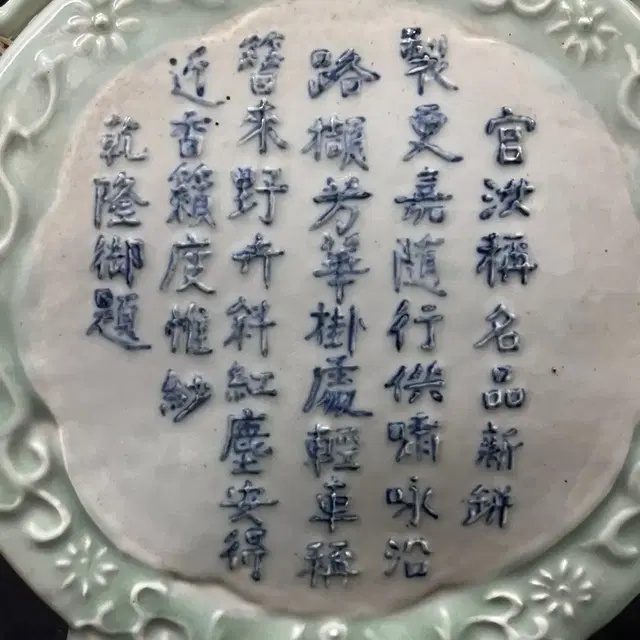 官汝稱名品新缾
製更嘉隨行供嘯咏沿
路擷芳華掛處輕車稱
簪来野卉斜紅塵安得
近香籟度帷紗
乾隆御題